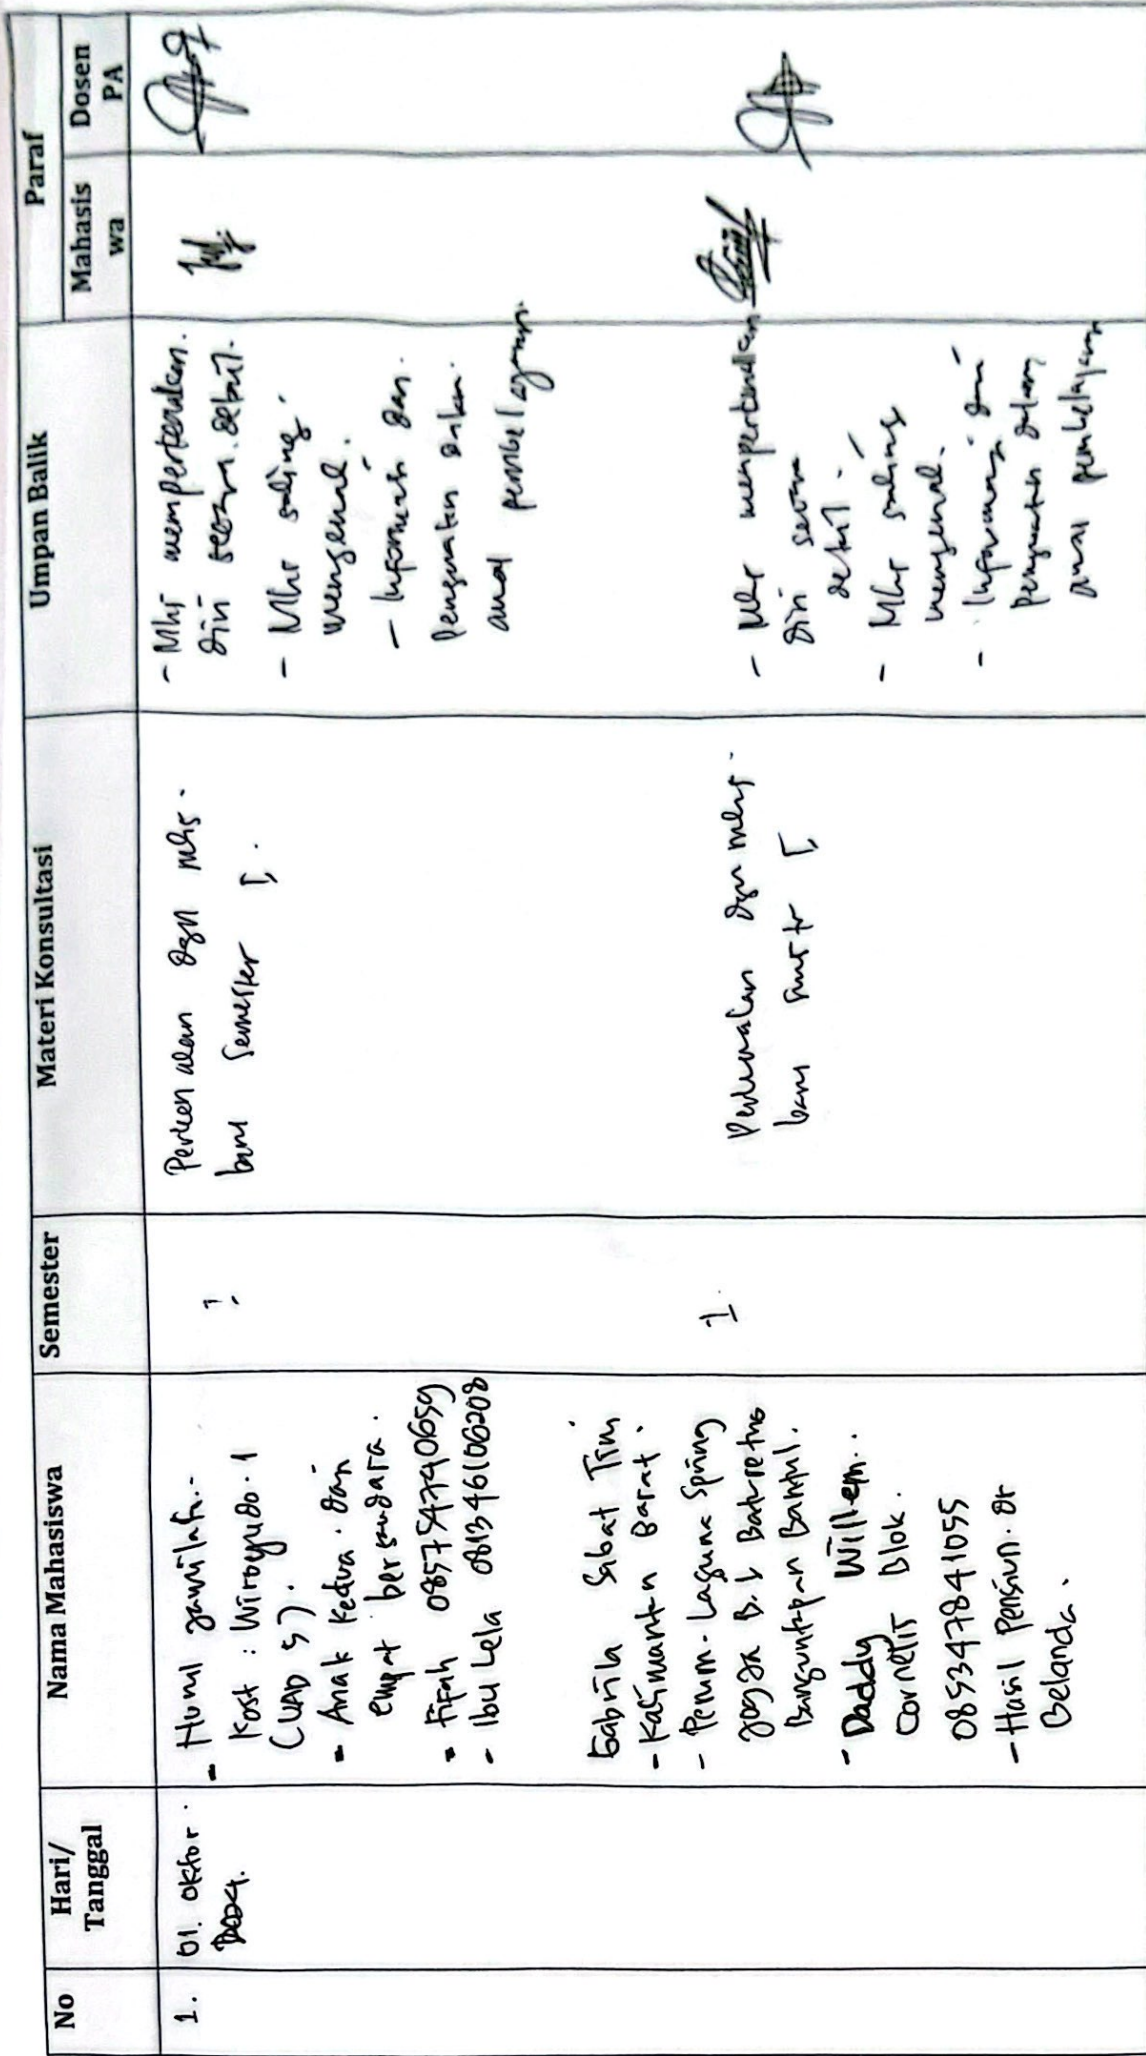 No
Hari/
Tanggal
Nama Mahasiswa
Semester
Materi Konsultasi
Umpan Balik
Paraf
Mahasis
wa
Dosen
PA
1.
01. Oktor.
- Husnul Jamilah..
Kost : Wiroyudo. 1
(UAD 5).
- Anak Kedua. dari
empat bersaudara.
- Fifah 085754740659
- Ibu Lela 081346106208
I
Perkenalan dgn mhs.
baru Semester I.
- Mhs memperkenalkan.
diri secara detail.
- Mhs saling
mengenal.
- Informasi dan.
Penguatan dalam.
awal pembelajaran.
Gabrila Sabat Trini
- Kalimantan Barat.
- Perum. Laguna Spring
Jogja B.1 Baturetno
Banguntapan Bantul.
- Daddy Willem..
Cornelis Blok.
085347841055
- Hasil Pensiun. dr
Belanda.
I.
Perkenalan dgn mhs.
baru smstr I
- Mhs memperkenalkan
diri secara
detail.
- Mhs saling
mengenal.
- Informasi dan
Penguatan dalam
awal pembelajaran